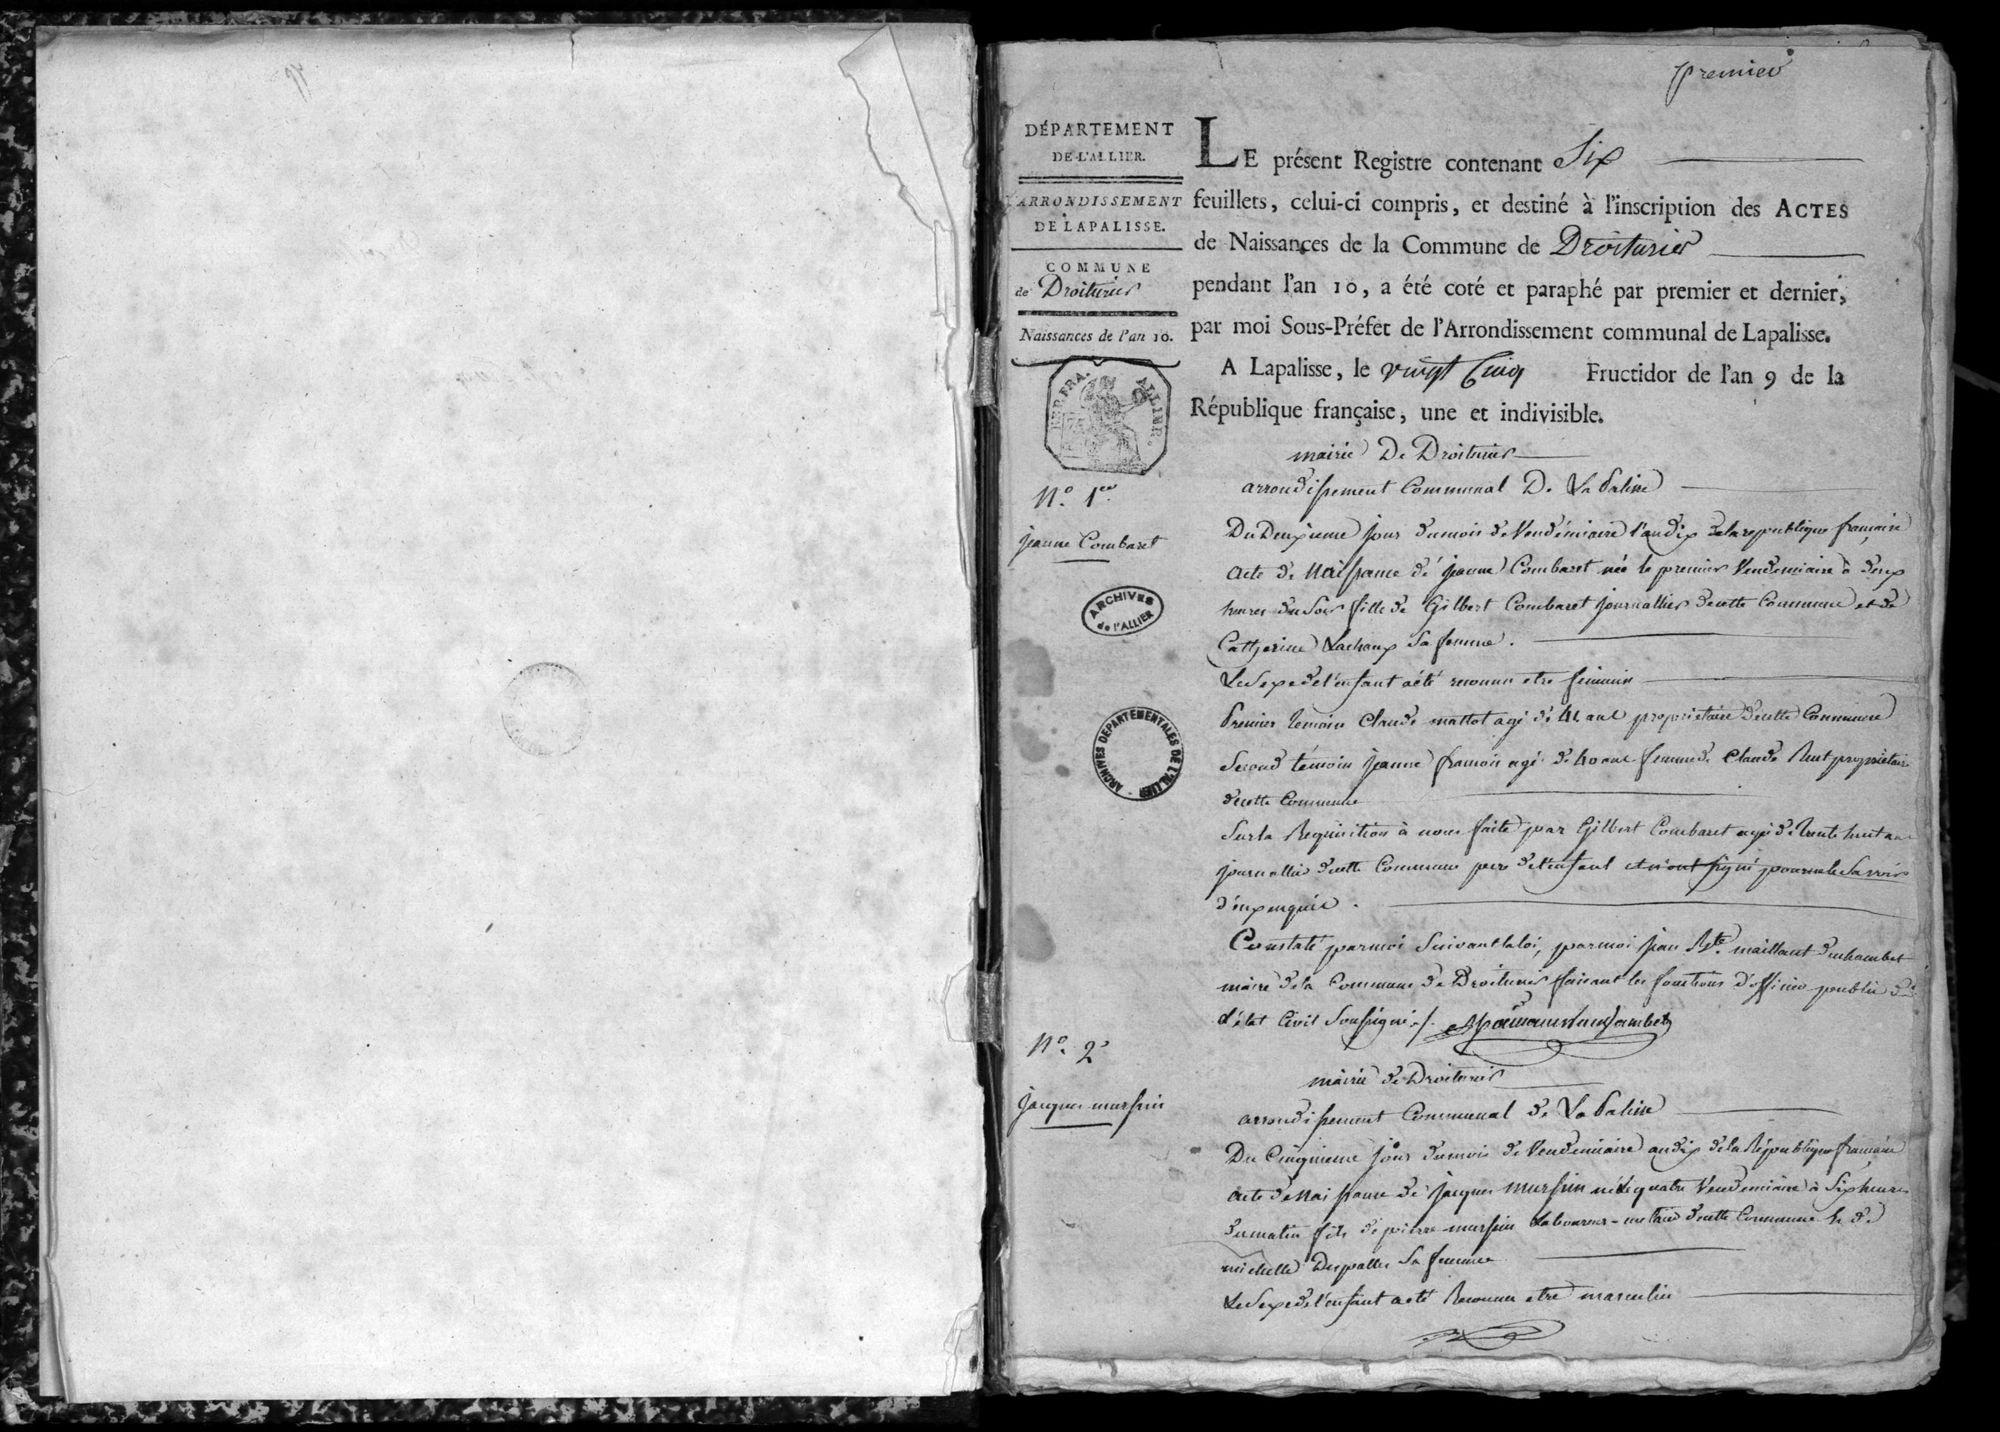 premier
DÉPARTEMENT
DE L'ALLIER.
ARRONDISSEMENT
DE LAPALISSE.
COMMUNE
de Droiturier
Naissances de l'an 10.
REP. FRA. ALLIER.
LE présent Registre contenant Six
feuillets, celui-ci compris, et destiné à l'inscription des ACTES
de Naissances de la Commune de Droiturier
pendant l'an 10, a été coté et paraphé par premier et dernier,
par moi Sous-Préfet de l'Arrondissement communal de Lapalisse.
A Lapalisse, le vingt Cinq Fructidor de l'an 9 de la
République française, une et indivisible.
mairie De Droiturier
arrondissement Communal De La Palisse
N.o 1er
jeanne Combaret
Du Deuxieme jour du mois de Vendémiaire l'an dix de la republique française
acte de Naissance de jeanne Combaret née le premier Vendemiaire à deux
heures du Soir fille de Gilbert Combaret journallier de cette Commune et de
Catherine Lachaux Sa femme.
Le Sexe de l'enfant a été reconnu etre feminin
Premier temoin Claude mattot agé de 41 ans propriétaire de cette Commune
Second temoin jeanne françois agé de 40 ans femme de Claude propriétaire
de cette Commune
Sur la Requisition à nous faite par Gilbert Combaret agé de trente huit ans
journallier de cette Commune pere de l'enfant et n'ont signé pour ne le Savoir
d'enx enquis.
Constaté par moi Suivant la loi, par moi jean Bte. maillant duchambet
maire de la Commune de Droiturier faisant les fonctions d'officier public de
l'état Civil Soussigné./.
ARCHIVES
de l'ALLIER
ARCHIVES DÉPARTEMENTALES DE L'ALLIER
N.o 2e
jacques mursin
mairie de Droiturier
arrondissement Communal de La Palisse
Du Cinquieme jour du mois de Vendemiaire an dix de la République française
acte de Naissance de jacques mursin né le quatre Vendemiaire à Six heures
du matin fils de pierre mursin Laboureur - de cette Commune & de
michelle Dupallis Sa femme
Le Sexe de l'enfant a été Reconnu etre masculin